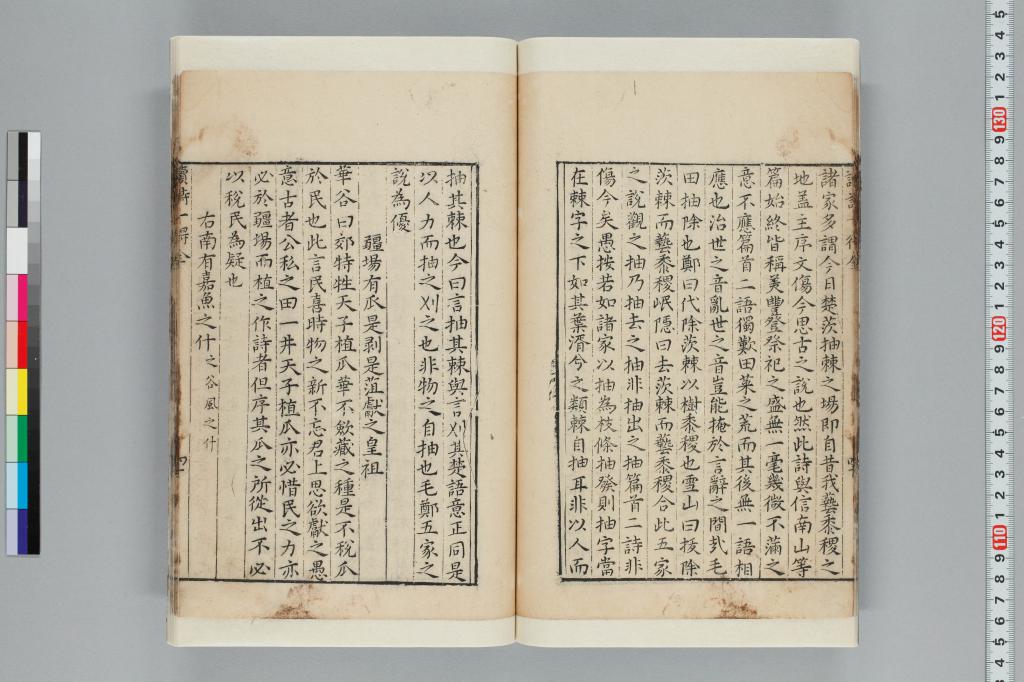 諸家多謂今日楚茨抽棘之場即自昔我藝黍稷之
地盖主序文傷今思古之說也然此詩與信南山等
篇始終皆稱美豐登祭祀之盛無一毫幾微不滿之
意不應篇首二語獨歎田萊之荒而其後無一語相
應也治世之音亂世之音豈能掩於言辭之間㢤毛
田抽除也鄭曰代除茨棘以樹黍稷也雪山曰拔除
茨棘而藝黍稷岷隱曰去茨棘而藝黍稷合此五家
之說觀之抽乃抽去之抽非抽出之抽篇首二詩非
傷今矣愚按若如諸家以抽為枝條抽發則抽字當
在棘字之下如其葉湑兮之類棘自抽耳非以人而
抽其棘也今曰言抽其棘與言刈其楚語意正同是
以人力而抽之刈之也非物之自抽也毛鄭五家之
說為優
疆場有瓜是剥是菹獻之皇祖
華谷曰郊特牲天子植瓜華不歛藏之種是不稅瓜
於民也此言民喜時物之新不忘君上思欲獻之愚
意古者公私之田一井天子植瓜亦必惜民之力亦
必於疆場而植之作詩者但序其瓜之所從出不必
以稅民為疑也
右南有嘉魚之什之谷風之什
讀詩一得全